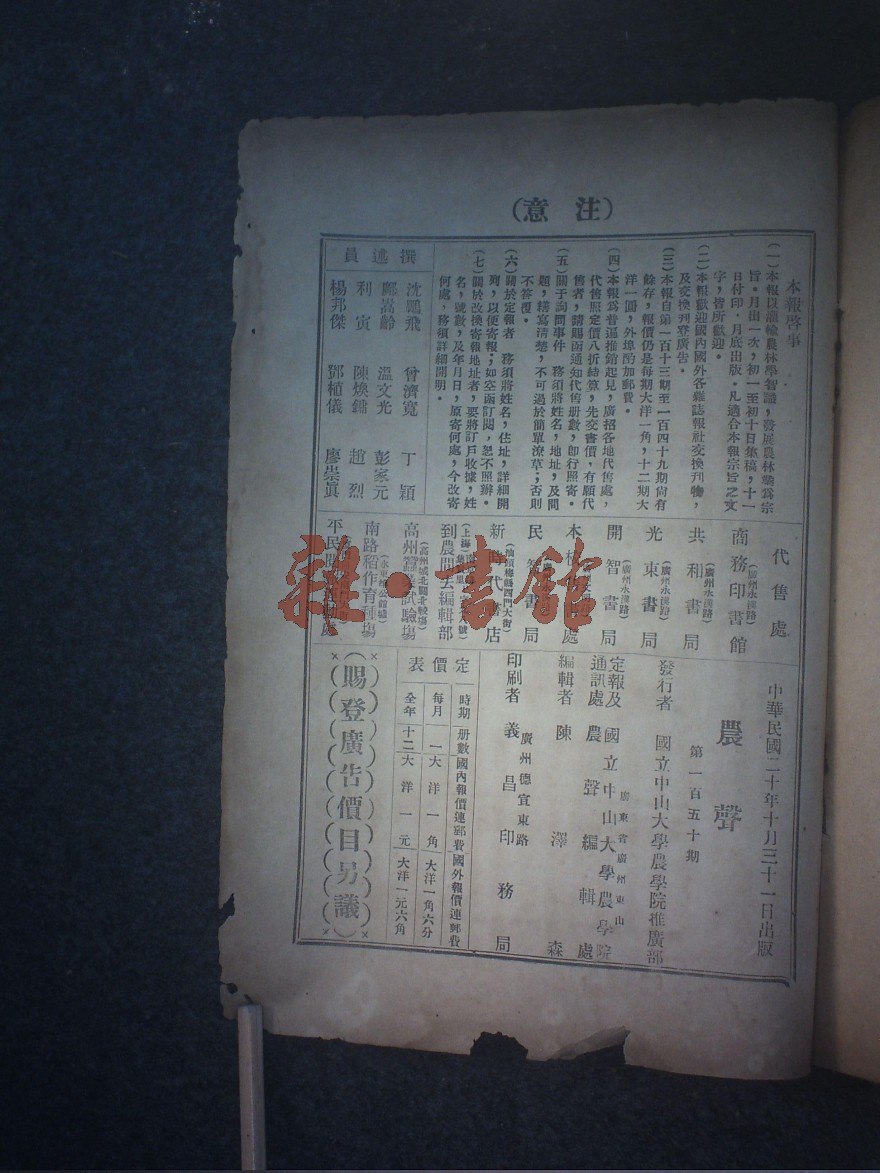 （注意）
本報啓事
（一）本報以灌輸農林學智識，發展農林事業爲宗
旨。月出一次，初一至初十日集稿，十一
日付印、月底出版。凡適合本報宗旨之文
字，皆所歡迎。
（二）本報歡迎國內國外各雜誌報社交換刊物，
及交換刊登廣告。
（三）本報自第一百十三期至一百四十九期尙有
餘存，報價仍是每期大洋一角，十二期大
洋一圓，外埠酌加郵費。
（四）本報爲普遍推銷起見，廣招各地代售處，
代售照定價八折結算，先交書價，有願代
售者，請賜函通知代售册數，卽行照寄。
（五）關于詢問事件　務須將姓名，地址，及問
題，繕寫清楚，不可過於簡單潦草；否則
不答覆。
（六）關於定報者　務須將姓名，住址，詳細開
列，以便寄報；如空函訂閱，恕不照辦。
（七）關於改換寄報地址者，要將訂戶收據，姓
名，號數，及年月日，原寄何處，今改寄
何處，務須詳細開明。
撰述員
沈鵬飛　曾濟寬　丁穎
鄺嵩齡　溫文光　彭家元
利寅　陳煥鏞　趙烈
楊邦傑　鄧植儀　廖崇眞
代售處
商務印書館（廣州永漢路）
共和書局（廣州永漢路）
光東書局（廣州永漢路）
開智書局（廣州永漢路）
本校
處
民智書局
新時代書店（汕頭梅縣西門大街）
到農間去編輯部（上海
高州蠶業試驗塲（高州城北關北較塲）
南路稻作育種塲
平民
中華民國二十年十月三十一日出版
農聲
第一百五十期
發行者　國立中山大學農學院推廣部
定報及通訊處　國立中山大學農學院農聲編輯處
廣東省廣州東山
編輯者　陳澤森
印刷者　義昌印務局
廣州德宣東路
定價表
時期　册數　國內報價連郵費　國外報價連郵費
每月　一　大洋一角　大洋一角六分
全年　十二　大洋一元　大洋一元六角
（賜登廣告價目另議）
雜·書館